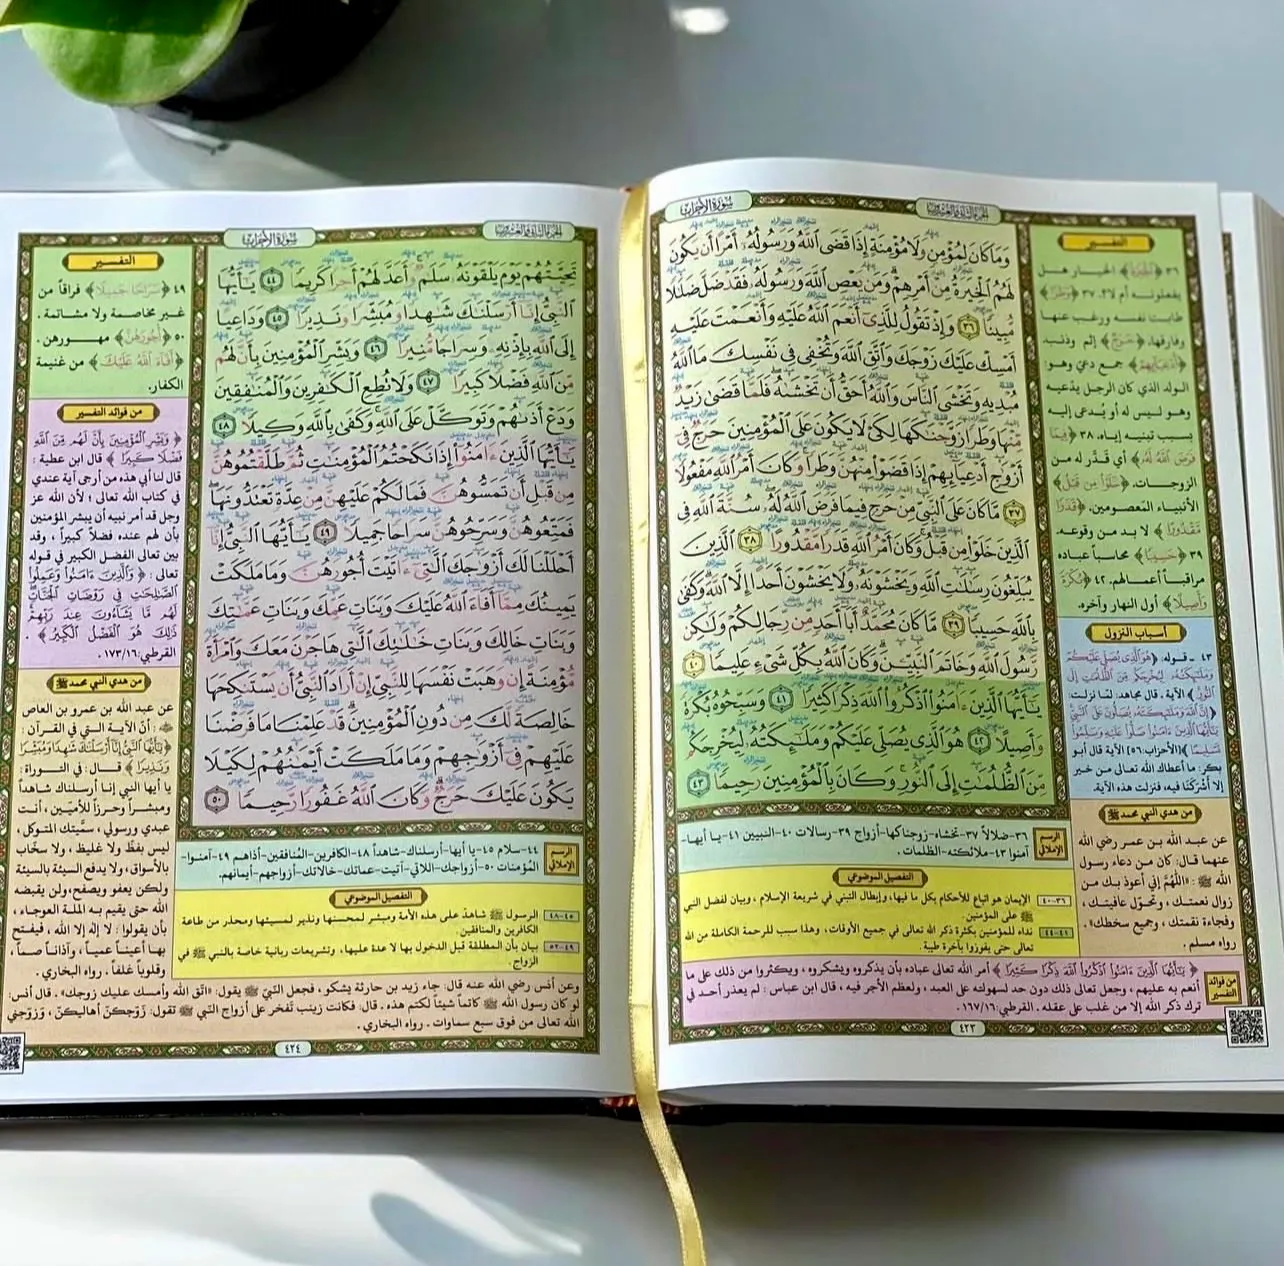 سُورَةُ الأَحْزَابِ
الجزء الثاني والعشرون
وَمَا كَانَ لِمُؤْمِنٍ وَلَا مُؤْمِنَةٍ إِذَا قَضَى ٱللَّهُ وَرَسُولُهُۥٓ أَمْرًا أَن يَكُونَ
لَهُمُ ٱلْخِيَرَةُ مِنْ أَمْرِهِمْ وَمَن يَعْصِ ٱللَّهَ وَرَسُولَهُۥ فَقَدْ ضَلَّ ضَلَٰلًا
مُّبِينًا ٣٦ وَإِذْ تَقُولُ لِلَّذِىٓ أَنْعَمَ ٱللَّهُ عَلَيْهِ وَأَنْعَمْتَ عَلَيْهِ
أَمْسِكْ عَلَيْكَ زَوْجَكَ وَٱتَّقِ ٱللَّهَ وَتُخْفِى فِى نَفْسِكَ مَا ٱللَّهُ
مُبْدِيهِ وَتَخْشَى ٱلنَّاسَ وَٱللَّهُ أَحَقُّ أَن تَخْشَىٰهُ فَلَمَّا قَضَىٰ زَيْدٌ
مِّنْهَا وَطَرًا زَوَّجْنَٰكَهَا لِكَىْ لَا يَكُونَ عَلَى ٱلْمُؤْمِنِينَ حَرَجٌ فِىٓ
أَزْوَٰجِ أَدْعِيَآئِهِمْ إِذَا قَضَوْا۟ مِنْهُنَّ وَطَرًا وَكَانَ أَمْرُ ٱللَّهِ مَفْعُولًا
٣٧ مَّا كَانَ عَلَى ٱلنَّبِىِّ مِنْ حَرَجٍ فِيمَا فَرَضَ ٱللَّهُ لَهُۥ سُنَّةَ ٱللَّهِ فِى
ٱلَّذِينَ خَلَوْا۟ مِن قَبْلُ وَكَانَ أَمْرُ ٱللَّهِ قَدَرًا مَّقْدُورًا ٣٨ ٱلَّذِينَ
يُبَلِّغُونَ رِسَٰلَٰتِ ٱللَّهِ وَيَخْشَوْنَهُۥ وَلَا يَخْشَوْنَ أَحَدًا إِلَّا ٱللَّهَ وَكَفَىٰ
بِٱللَّهِ حَسِيبًا ٣٩ مَّا كَانَ مُحَمَّدٌ أَبَآ أَحَدٍ مِّن رِّجَالِكُمْ وَلَٰكِن
رَّسُولَ ٱللَّهِ وَخَاتَمَ ٱلنَّبِيِّۦنَ وَكَانَ ٱللَّهُ بِكُلِّ شَىْءٍ عَلِيمًا ٤٠
يَٰٓأَيُّهَا ٱلَّذِينَ ءَامَنُوا۟ ٱذْكُرُوا۟ ٱللَّهَ ذِكْرًا كَثِيرًا ٤١ وَسَبِّحُوهُ بُكْرَةً
وَأَصِيلًا ٤٢ هُوَ ٱلَّذِى يُصَلِّى عَلَيْكُمْ وَمَلَٰٓئِكَتُهُۥ لِيُخْرِجَكُم
مِّنَ ٱلظُّلُمَٰتِ إِلَى ٱلنُّورِ وَكَانَ بِٱلْمُؤْمِنِينَ رَحِيمًا ٤٣
التفسير
٣٦ ﴿الْخِيَرَةُ﴾ الخيار هل
يفعلونه أم لا. ٣٧ ﴿وَطَرًا﴾
طابت نفسه ورغب عنها
وفارقها. ﴿حَرَجٌ﴾ إثم وذنب.
﴿أَدْعِيَائِهِمْ﴾ جمع دعي وهو
الولد الذي كان الرجل يدعيه
وهو ليس له أو يُدعى إليه
بسبب تبنيه إياه. ٣٨ ﴿فِيمَا
فَرَضَ اللَّهُ لَهُ﴾ أي قدَّر له من
الزوجات. ﴿خَلَوْا مِن قَبْلُ﴾
الأنبياء المعصومين. ﴿قَدَرًا
مَّقْدُورًا﴾ لا بد من وقوعه
٣٩ ﴿حَسِيبًا﴾ محاسباً عباده
مراقباً أعمالهم. ٤٢ ﴿بُكْرَةً
وَأَصِيلًا﴾ أول النهار وآخره.
أسباب النزول
٤٣ ـ قوله: ﴿هُوَ الَّذِي يُصَلِّي عَلَيْكُمْ
وَمَلَائِكَتُهُ لِيُخْرِجَكُم مِّنَ الظُّلُمَاتِ إِلَى
النُّورِ﴾ الآية. قال مجاهد: لمّا نزلت:
﴿إِنَّ اللَّهَ وَمَلَائِكَتَهُ يُصَلُّونَ عَلَى النَّبِيِّ
يَا أَيُّهَا الَّذِينَ آمَنُوا صَلُّوا عَلَيْهِ وَسَلِّمُوا
تَسْلِيمًا﴾ (الأحزاب:٥٦) الآية قال أبو
بكر: ما أعطاك الله تعالى من خير
إلا أَشْرَكَنَا فيه، فنزلت هذه الآية.
من هدي النبي محمد ﷺ
عن عبد الله بن عمر رضي الله
عنهما قال: كان من دعاء رسول
الله ﷺ: «اللَّهُمَّ إني أعوذ بك من
زوال نعمتك، وتحوّل عافيتك،
وفجاءة نقمتك، وجميع سخطك».
رواه مسلم.
الرسم الإملائي
٣٦-ضلالاً ٣٧-تخشاه-زوجناكها-أزواج ٣٩-رسالات ٤٠-النبيين ٤١-يا أيها-
آمنوا ٤٣-ملائكته-الظلمات.
التفصيل الموضوعي
٣٦-٤٠ الإيمان هو اتباع للأحكام بكل ما فيها، وإبطال التبني في شريعة الإسلام، وبيان لفضل النبي
ﷺ على المؤمنين.
٤١-٤٤ نداء للمؤمنين بكثرة ذكر الله تعالى في جميع الأوقات، وهذا سبب للرحمة الكاملة من الله
تعالى حتى يفوزوا بآخرة طيبة.
من فوائد التفسير
﴿يَا أَيُّهَا الَّذِينَ آمَنُوا اذْكُرُوا اللَّهَ ذِكْرًا كَثِيرًا﴾ أمر الله تعالى عباده بأن يذكروه ويشكروه، ويكثروا من ذلك على ما
أنعم به عليهم، وجعل تعالى ذلك دون حد لسهولته على العبد، ولعظم الأجر فيه، قال ابن عباس: لم يعذر أحد في
ترك ذكر الله إلا من غلب على عقله. القرطبي:١٦٧/١٦.
٤٢٣
الجزء الثاني والعشرون
سُورَةُ الأَحْزَابِ
تَحِيَّتُهُمْ يَوْمَ يَلْقَوْنَهُۥ سَلَٰمٌ وَأَعَدَّ لَهُمْ أَجْرًا كَرِيمًا ٤٤ يَٰٓأَيُّهَا
ٱلنَّبِىُّ إِنَّآ أَرْسَلْنَٰكَ شَٰهِدًا وَمُبَشِّرًا وَنَذِيرًا ٤٥ وَدَاعِيًا
إِلَى ٱللَّهِ بِإِذْنِهِۦ وَسِرَاجًا مُّنِيرًا ٤٦ وَبَشِّرِ ٱلْمُؤْمِنِينَ بِأَنَّ لَهُم
مِّنَ ٱللَّهِ فَضْلًا كَبِيرًا ٤٧ وَلَا تُطِعِ ٱلْكَٰفِرِينَ وَٱلْمُنَٰفِقِينَ
وَدَعْ أَذَىٰهُمْ وَتَوَكَّلْ عَلَى ٱللَّهِ وَكَفَىٰ بِٱللَّهِ وَكِيلًا ٤٨
يَٰٓأَيُّهَا ٱلَّذِينَ ءَامَنُوٓا۟ إِذَا نَكَحْتُمُ ٱلْمُؤْمِنَٰتِ ثُمَّ طَلَّقْتُمُوهُنَّ
مِن قَبْلِ أَن تَمَسُّوهُنَّ فَمَا لَكُمْ عَلَيْهِنَّ مِنْ عِدَّةٍ تَعْتَدُّونَهَا
فَمَتِّعُوهُنَّ وَسَرِّحُوهُنَّ سَرَاحًا جَمِيلًا ٤٩ يَٰٓأَيُّهَا ٱلنَّبِىُّ إِنَّآ
أَحْلَلْنَا لَكَ أَزْوَٰجَكَ ٱلَّٰتِىٓ ءَاتَيْتَ أُجُورَهُنَّ وَمَا مَلَكَتْ
يَمِينُكَ مِمَّآ أَفَآءَ ٱللَّهُ عَلَيْكَ وَبَنَاتِ عَمِّكَ وَبَنَاتِ عَمَّٰتِكَ
وَبَنَاتِ خَالِكَ وَبَنَاتِ خَٰلَٰتِكَ ٱلَّٰتِى هَاجَرْنَ مَعَكَ وَٱمْرَأَةً
مُّؤْمِنَةً إِن وَهَبَتْ نَفْسَهَا لِلنَّبِىِّ إِنْ أَرَادَ ٱلنَّبِىُّ أَن يَسْتَنكِحَهَا
خَالِصَةً لَّكَ مِن دُونِ ٱلْمُؤْمِنِينَ قَدْ عَلِمْنَا مَا فَرَضْنَا
عَلَيْهِمْ فِىٓ أَزْوَٰجِهِمْ وَمَا مَلَكَتْ أَيْمَٰنُهُمْ لِكَيْلَا
يَكُونَ عَلَيْكَ حَرَجٌ وَكَانَ ٱللَّهُ غَفُورًا رَّحِيمًا ٥٠
التفسير
٤٩ ﴿سَرَاحًا جَمِيلًا﴾ فراقاً من
غير مخاصمة ولا مشاتمة.
٥٠ ﴿أُجُورَهُنَّ﴾ مهورهن.
﴿أَفَاءَ اللَّهُ عَلَيْكَ﴾ من غنيمة
الكفار.
من فوائد التفسير
﴿وَبَشِّرِ الْمُؤْمِنِينَ بِأَنَّ لَهُم مِّنَ اللَّهِ
فَضْلًا كَبِيرًا﴾ قال ابن عطية:
قال لنا أبي هذه من أرجى آية عندي
في كتاب الله تعالى؛ لأن الله عز
وجل قد أمر نبيه أن يبشر المؤمنين
بأن لهم عنده فضلاً كبيراً، وقد
بين تعالى الفضل الكبير في قوله
تعالى: ﴿وَالَّذِينَ آمَنُوا وَعَمِلُوا
الصَّالِحَاتِ فِي رَوْضَاتِ الْجَنَّاتِ
لَهُم مَّا يَشَاءُونَ عِندَ رَبِّهِمْ
ذَٰلِكَ هُوَ الْفَضْلُ الْكَبِيرُ﴾.
القرطبي:١٧٣/١٦.
من هدي النبي محمد ﷺ
عن عبد الله بن عمرو بن العاص
: أنَّ الآية التي في القرآن:
﴿يَا أَيُّهَا النَّبِيُّ إِنَّا أَرْسَلْنَاكَ شَاهِدًا وَمُبَشِّرًا
وَنَذِيرًا﴾ قال: في التوراة:
يا أيها النبي إنا أرسلناك شاهداً
ومبشراً وحرزاً للأميّين، أنت
عبدي ورسولي، سمَّيتك المتوكل،
ليس بفظٍّ ولا غليظ، ولا سخَّاب
بالأسواق، ولا يدفع السيئة بالسيئة
ولكن يعفو ويصفح، ولن يقبضه
الله حتى يقيم به الملة العوجاء،
بأن يقولوا: لا إله إلا الله، فيفتح
بها أعيناً عمياً، وآذاناً صماً،
وقلوباً غلفاً. رواه البخاري.
الرسم الإملائي
٤٤-سلام ٤٥-يا أيها-أرسلناك-شاهداً ٤٨-الكافرين-المنافقين-أذاهم ٤٩-آمنوا-
المؤمنات ٥٠-أزواجك-اللاتي-آتيت-عماتك-خالاتك-أزواجهم-أيمانهم.
التفصيل الموضوعي
٤٥-٤٨ الرسول ﷺ شاهدٌ على هذه الأمة ومبشر لمحسنها ونذير لمسيئها ومحذر من طاعة
الكافرين والمنافقين.
٤٩-٥٢ بيان بأن المطلقة قبل الدخول بها لا عدة عليها، وتشريعات ربانية خاصة بالنبي ﷺ في
الزواج.
وعن أنس رضي الله عنه قال: جاء زيد بن حارثة يشكو، فجعل النَّبيّ ﷺ يقول: «اتَّق الله وأمسك عليك زوجك». قال أنس:
لو كان رسول الله ﷺ كاتماً شيئاً لكتم هذه. قال: فكانت زينب تفخر على أزواج النبي ﷺ تقول: زوّجكنّ أهاليكنّ، وزوّجني
الله تعالى من فوق سبع سماوات. رواه البخاري.
٤٢٤